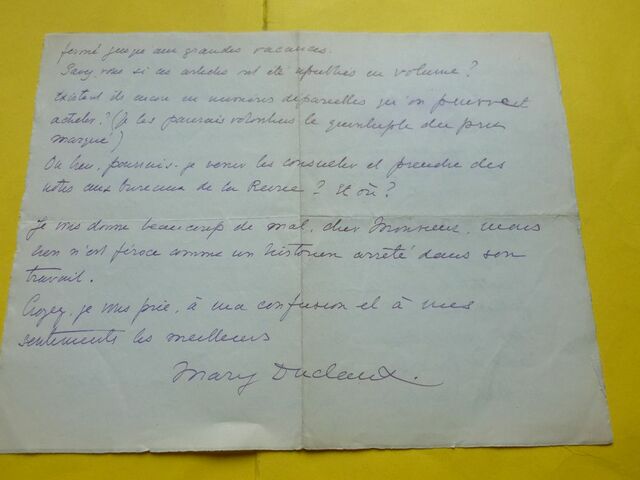 fermé jusque aux grandes vacances.
Savez-vous si ces articles ont été republiés en volume?
Existent ils encore en numéros dépareillés qu'on pourrait
acheter? (Je les paierais volontiers le quintuple du prix
marqué)
Ou bien, pourrais-je venir les consulter et prendre des
notes aux bureaux de la Revue? Et où?
Je vous donne beaucoup de mal, cher Monsieur, mais
rien n'est féroce comme un historien arrêté dans son
travail.
Croyez, je vous prie, à ma confusion et à mes
sentiments les meilleurs
Mary Duclaux.